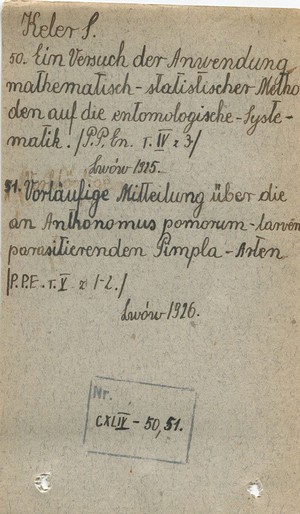 Keler S.
50. Ein Versuch der Anwendung
mathematisch-statistischer Metho
den auf die entomologische-Syste-
matik. /P.P.En. T. IV z 3/
Lwów 1925.
51. Vorläufige Mitteilung über die
an Anthonomus pomorum-larven
parasitierenden Pimpla-Arten
/P.P.E. T. V z 1-2./
Lwów 1926.
Nr.
CXLIV - 50, 51.